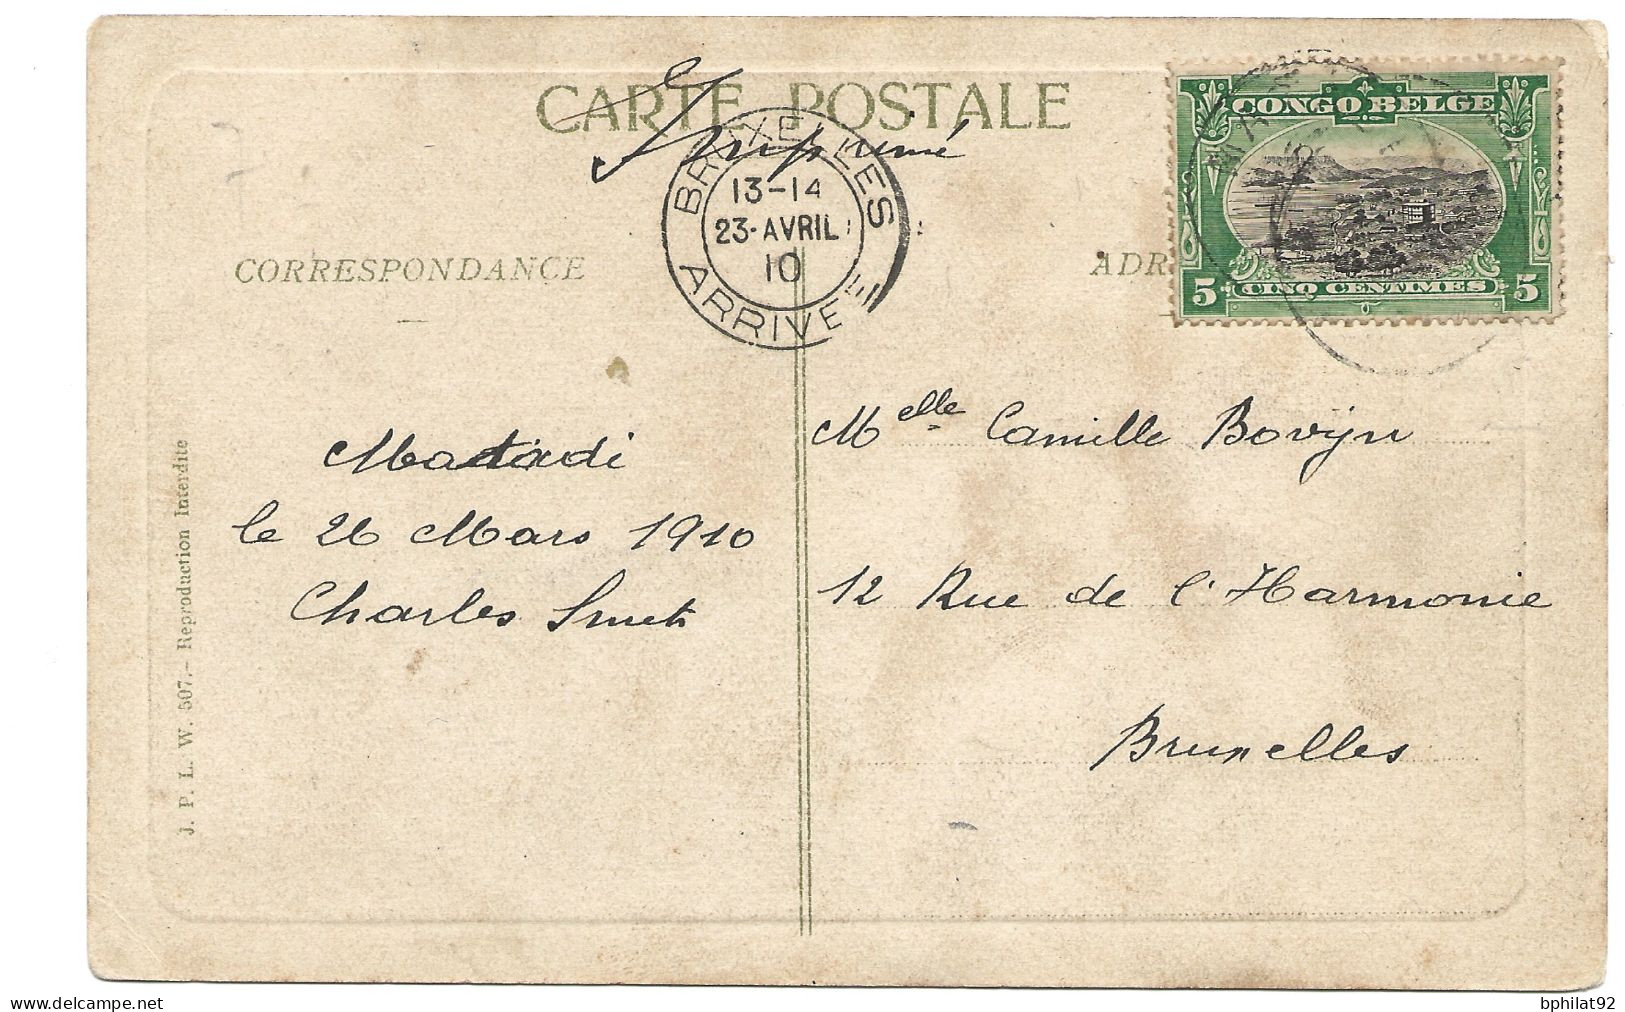 CARTE POSTALE
Imprimé
BRUXELLES
13-14
23·AVRIL
10
ARRIVEE
CONGO BELGE
5 CINQ CENTIMES 5
CORRESPONDANCE
Matadi
le 26 Mars 1910
Charles Smets
Melle Camille Bovijn
12 Rue de l'Harmonie
Bruxelles
J. P. L. W. 507.- Reproduction Interdite
delcampe.net
bphilat92